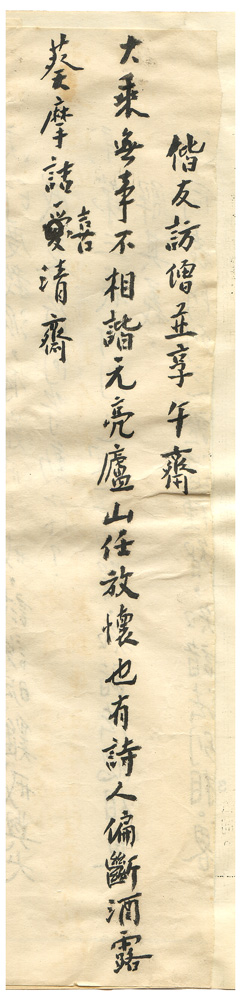 偕友訪僧並享午齋
大乘無事不相諧元亮廬山任放懷也有詩人偏斷酒露
葵摩詰喜清齋